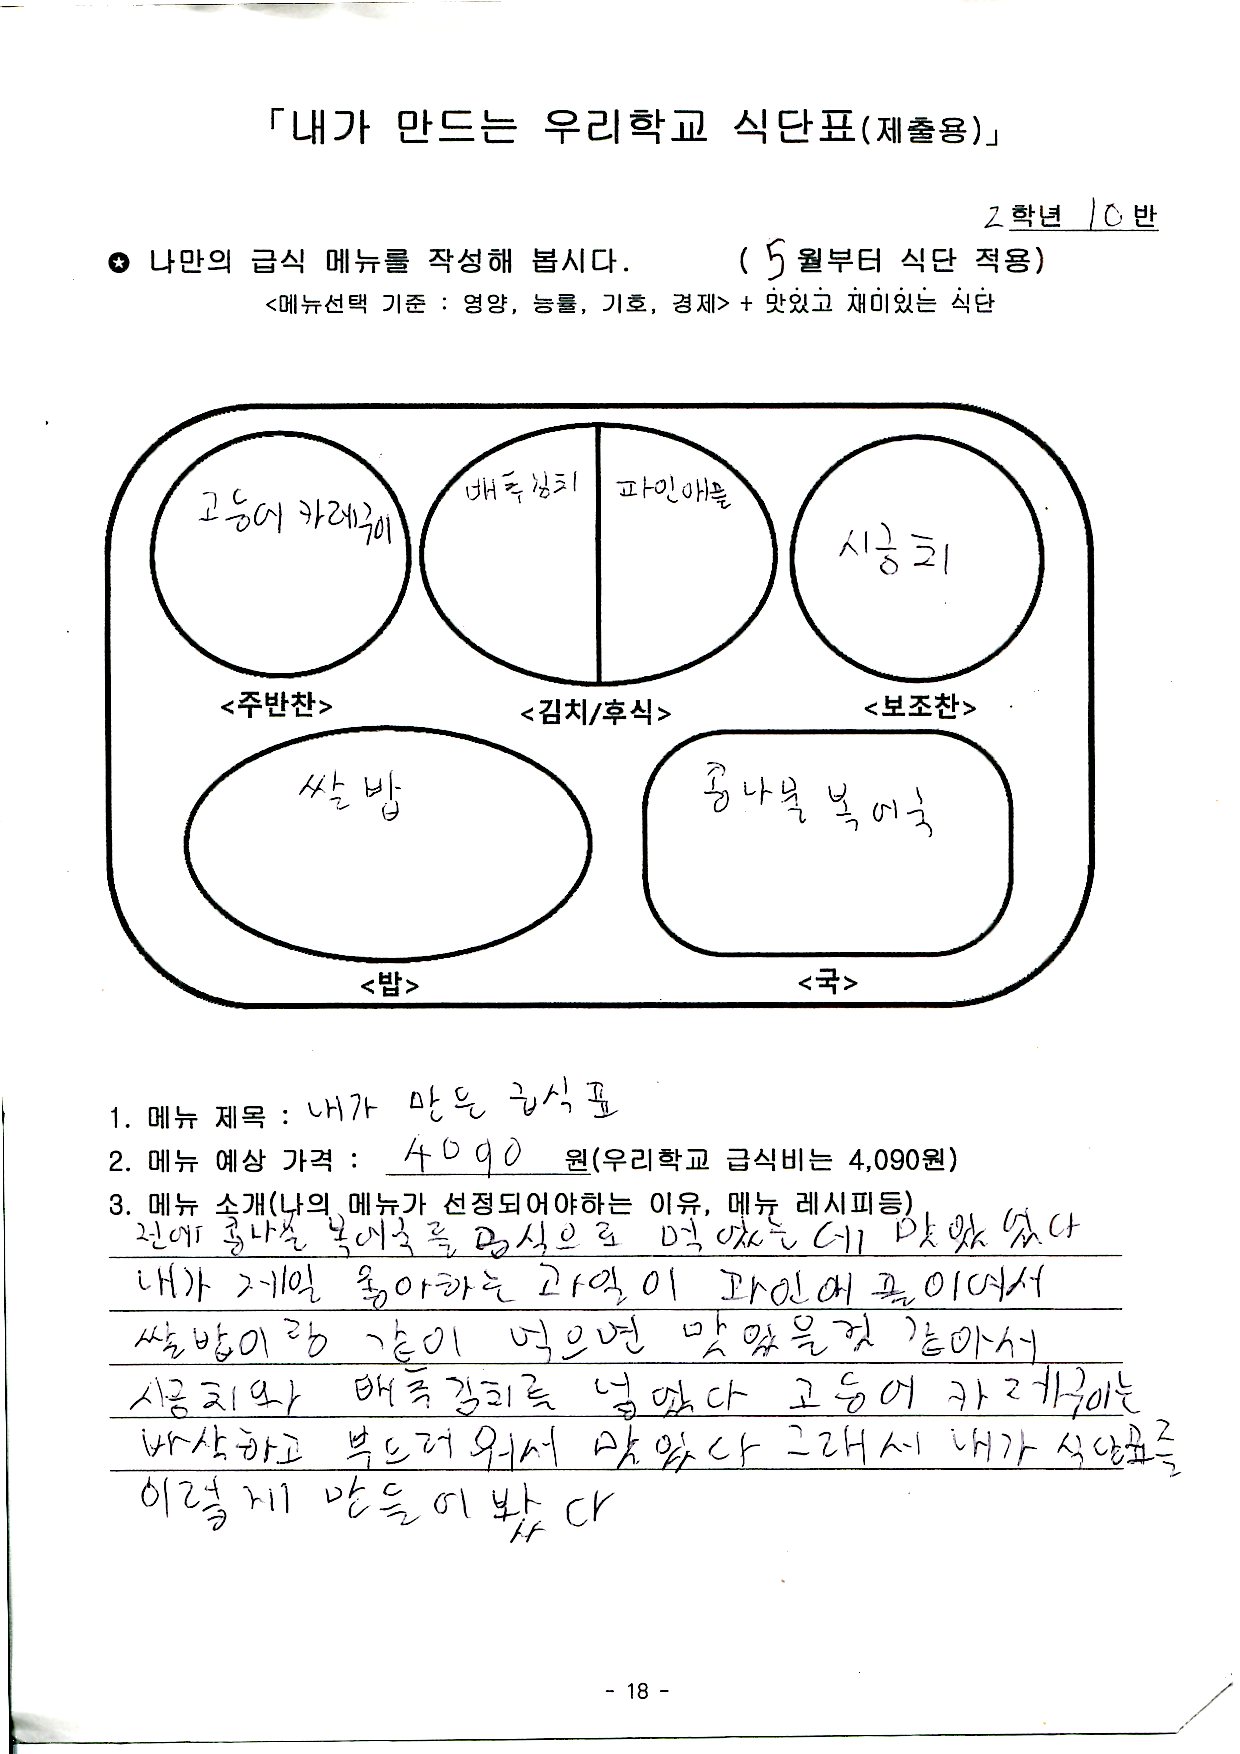 「내가 만드는 우리학교 식단표(제출용)」
2학년 10반
✪ 나만의 급식 메뉴를 작성해 봅시다. ( 5월부터 식단 적용)
<메뉴선택 기준 : 영양, 능률, 기호, 경제> + 맛있고 재미있는 식단
고등어 카레구이
배추김치 파인애플
시금치
<주반찬> <김치/후식> <보조찬>
쌀밥
콩나물 북어국
<밥> <국>
1. 메뉴 제목 : 내가 만든 급식표
2. 메뉴 예상 가격 : 4090 원(우리학교 급식비는 4,090원)
3. 메뉴 소개(나의 메뉴가 선정되어야하는 이유, 메뉴 레시피등)
전에 콩나물 북어국를 급식으로 먹었는데 맛있었다
내가 제일 좋아하는 과일이 파인애플이여서
쌀밥이랑 같이 먹으면 맛있을것 같아서
시금치와 배추김치를 넣었다 고등어 카레구이는
바삭하고 부드러워서 맛있다 그래서 내가 식단표를
이렇게 만들어봤다
- 18 -